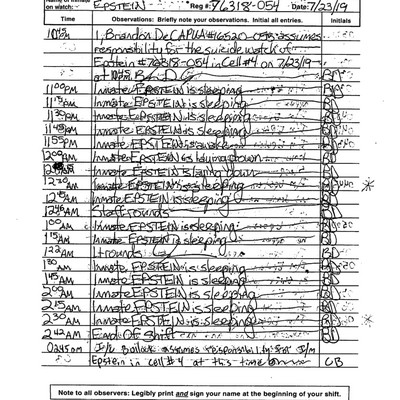 Name of Inmate
on watch: EPSTEIN Reg #: 76318-054 Date: 7/23/19
Time Observations: Briefly note your observations. Initial all entries. Initials
I, Brandon DeCAPUA assumes
responsibility for the suicide watch of
Epstein #76318-054 in Cell #4 on 7/23/19
at
11:00PM Inmate EPSTEIN is sleeping BD
11:15PM Inmate EPSTEIN is sleeping BD
11:30PM Inmate EPSTEIN is sleeping BD
11:45PM Inmate EPSTEIN is sleeping BD
11:55PM Inmate EPSTEIN is awake BD
12:00AM Inmate EPSTEIN is laying down BD
AM Inmate EPSTEIN is laying down BD
12:30AM Inmate EPSTEIN is sleeping BD
12:45AM Inmate EPSTEIN is sleeping BD
12:46AM Staff rounds BD
1:00AM Inmate EPSTEIN is sleeping BD
1:15AM Inmate EPSTEIN is sleeping BD
1:22AM rounds BD
1:30AM Inmate EPSTEIN is sleeping BD
1:45AM Inmate EPSTEIN is sleeping BD
2:00AM Inmate EPSTEIN is sleeping BD
2:15AM Inmate EPSTEIN is sleeping BD
2:30AM Inmate EPSTEIN is sleeping BD
2:42AM End Of Shift BD
0245am I/C assumes responsibility for I/m
Epstein in cell #4 at this time CB
Note to all observers: Legibly print and sign your name at the beginning of your shift.